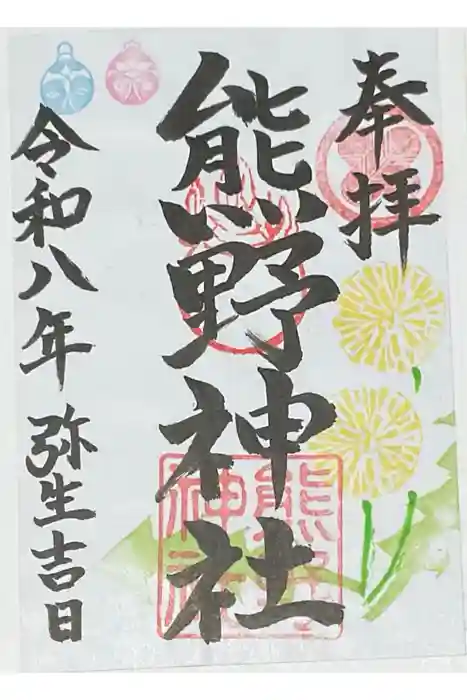 奉拝
熊野神社
令和八年 弥生吉日
熊野
神社